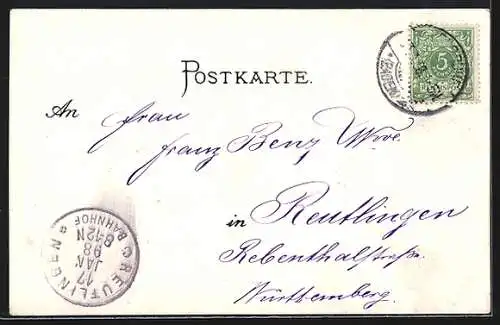 POSTKARTE.
An Frau
Franz Benz Wwe.
in Reutlingen
Rebenthalstraße.
Württemberg.
5
REUTLINGEN
BAHNHOF
17
JAN
98
8-12N